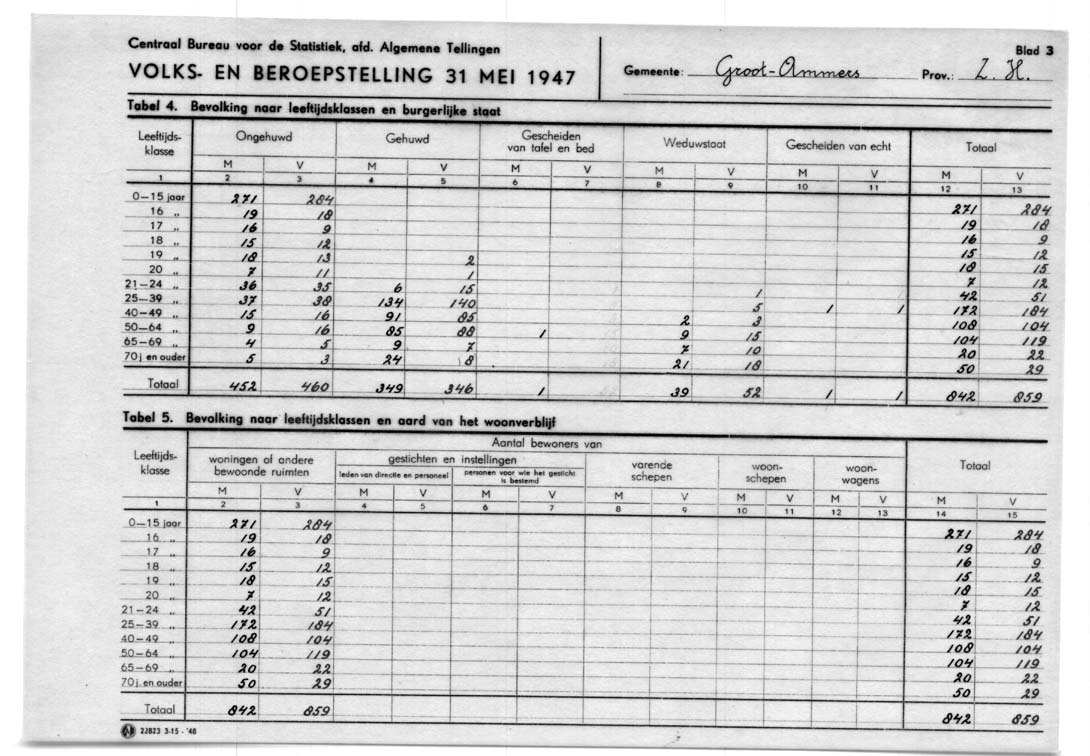 Centraal Bureau voor de Statistiek, afd. Algemene Tellingen
VOLKS- EN BEROEPSTELLING 31 MEI 1947
Gemeente: Groot-Ammers Prov.: Z. H.
Blad 3
Tabel 4. Bevolking naar leeftijdsklassen en burgerlijke staat
Leeftijdsklasse Ongehuwd Gehuwd Gescheiden van tafel en bed Weduwstaat Gescheiden van echt Totaal
M V M V M V M V M V M V
1 2 3 4 5 6 7 8 9 10 11 12 13
0—15 jaar 271 284 271 284
16 „ 19 18 19 18
17 „ 16 9 16 9
18 „ 15 12 15 12
19 „ 18 13 2 18 15
20 „ 7 11 1 7 12
21—24 „ 36 35 6 15 1 42 51
25—39 „ 37 38 134 140 5 1 1 172 184
40—49 „ 15 16 91 85 2 3 108 104
50—64 „ 9 16 85 88 1 9 15 104 119
65—69 „ 4 5 9 7 7 10 20 22
70 j. en ouder 5 3 24 8 21 18 50 29
Totaal 452 460 349 346 1 39 52 1 1 842 859
Tabel 5. Bevolking naar leeftijdsklassen en aard van het woonverblijf
Leeftijdsklasse Aantal bewoners van Totaal
woningen of andere bewoonde ruimten gestichten en instellingen varende schepen woonschepen woonwagens
leden van directie en personeel personen voor wie het gesticht is bestemd
M V M V M V M V M V M V M V
1 2 3 4 5 6 7 8 9 10 11 12 13 14 15
0—15 jaar 271 284 271 284
16 „ 19 18 19 18
17 „ 16 9 16 9
18 „ 15 12 15 12
19 „ 18 15 18 15
20 „ 7 12 7 12
21—24 „ 42 51 42 51
25—39 „ 172 184 172 184
40—49 „ 108 104 108 104
50—64 „ 104 119 104 119
65—69 „ 20 22 20 22
70 j. en ouder 50 29 50 29
Totaal 842 859 842 859
22823 3-15 - '48